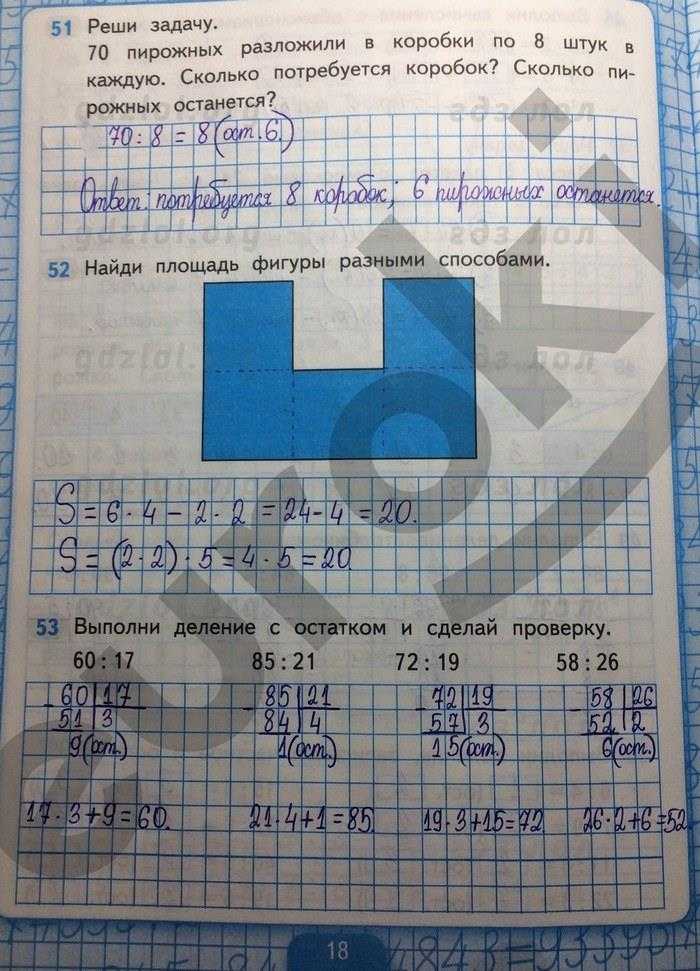 51 Реши задачу.
70 пирожных разложили в коробки по 8 штук в
каждую. Сколько потребуется коробок? Сколько пи-
рожных останется?
70 : 8 = 8 (ост. 6)
Ответ: потребуется 8 коробок; 6 пирожных останется.
52 Найди площадь фигуры разными способами.
S = 6 · 4 - 2 · 2 = 24 - 4 = 20.
S = (2 · 2) · 5 = 4 · 5 = 20
53 Выполни деление с остатком и сделай проверку.
60 : 17 85 : 21 72 : 19 58 : 26
- 60 17 - 85 21 - 72 19 - 58 26
51 3 84 4 57 3 52 2
9 (ост.) 1 (ост.) 15 (ост.) 6 (ост.)
17 · 3 + 9 = 60. 21 · 4 + 1 = 85 19 · 3 + 15 = 72 26 · 2 + 6 = 52
18
euroki